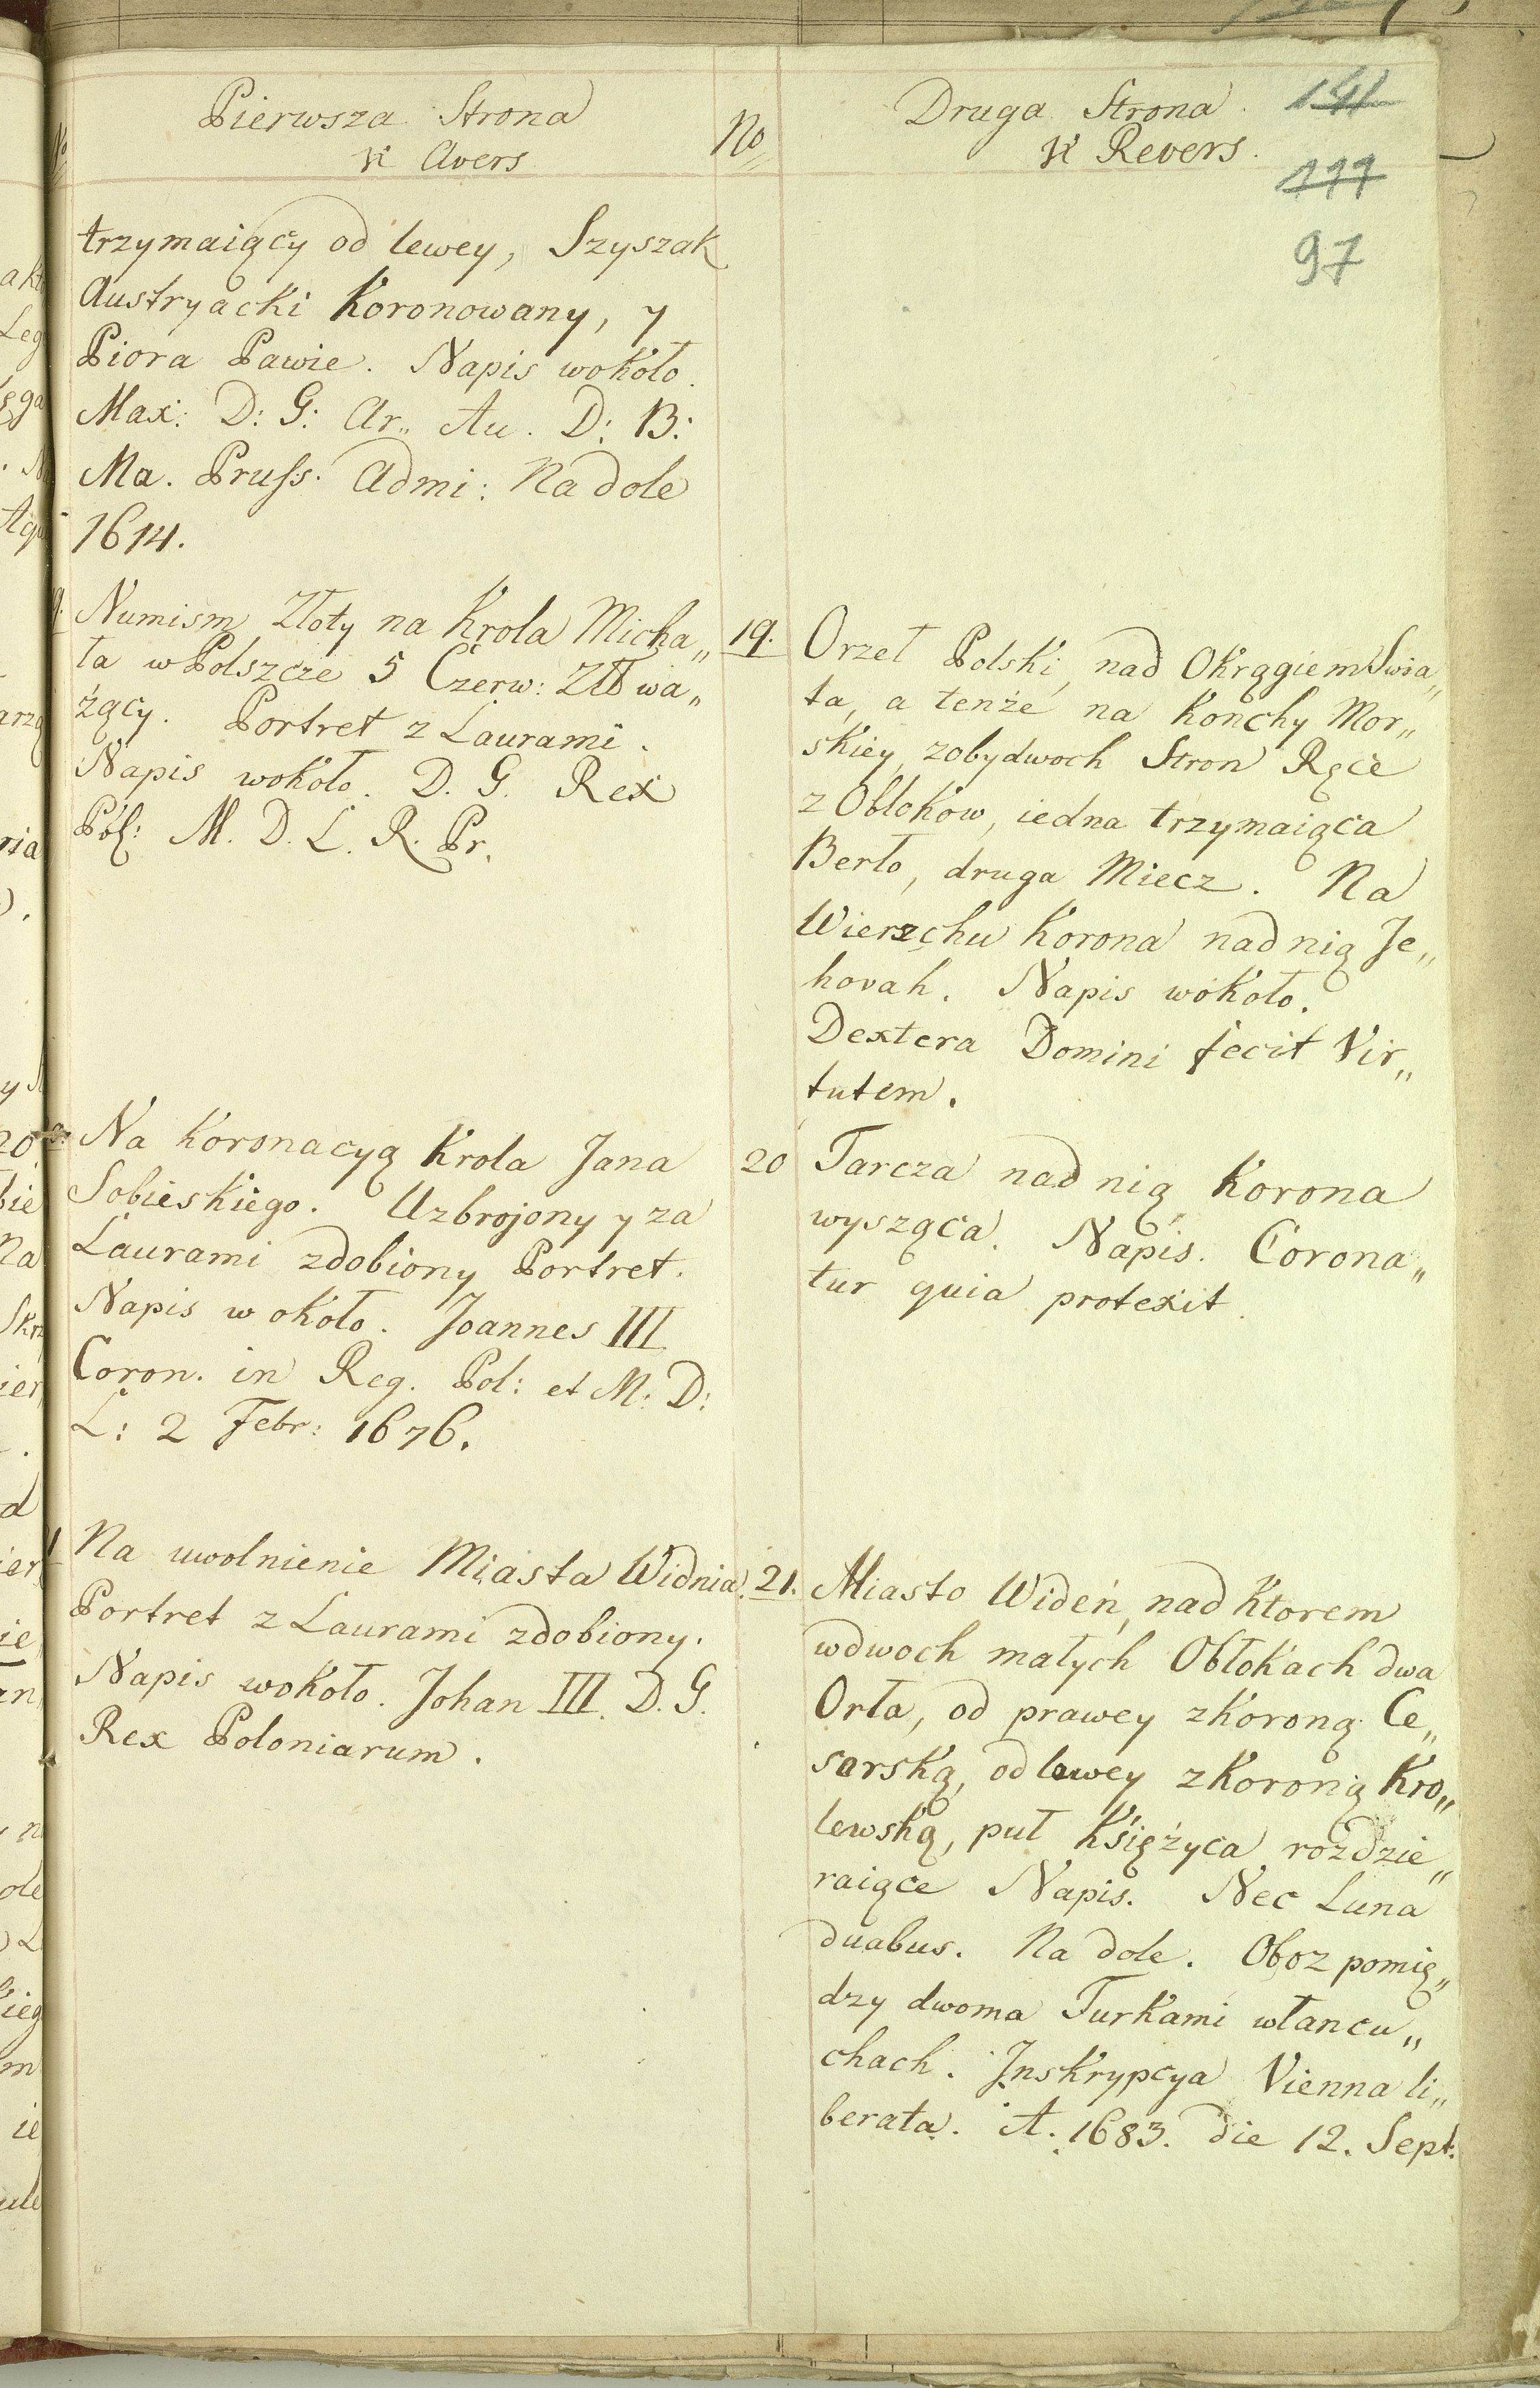 Pierwsza Strona
Avers
No
Druga Strona
Revers.
141
177
97
trzymaiący od lewey, Szyszak
Austryacki Koronowany, y
Piora Pawie. Napis wokoło.
Max: D: G: Ar,, Au. D: B:
Ma. Pruss. Admi: Na dole
1614.
Numism Złoty na Krola Micha,,
ła w Polszcze 5 Czerw: Zł wa,,
żący. Portret z Laurami.
Napis wokoło. D. G. Rex
Pol: M. D. L. R. Pr.
19. Orzeł Polski, nad Okrągiem Swia,,
ta, a tenże na Konchy Mor,,
skiey, zobydwoch Stron Ręce
z Obłokow, iedna trzymaiąca
Berło, druga Miecz. Na
Wierzchu Korona nad nią Je,,
hovah. Napis wokoło.
Dextera Domini fecit Vir,,
tutem.
Na Koronacyą Krola Jana
Sobieskiego. Uzbrojony y za
Laurami zdobiony Portret.
Napis w około. Joannes III
Coron. in Reg. Pol: et M: D:
L: 2 Febr: 1676.
20 Tarcza nad nią Korona
wysząca. Napis. Corona,,
tur quia protexit
Na uwolnienie Miasta Widnia.
Portret z Laurami zdobiony.
Napis wokoło. Johan III. D. G.
Rex Poloniarum.
21. Miasto Wideń, nad Ktorem
wdwoch małych Obłokach dwa
Orła, od prawey zKoroną Ce,,
sarską, od lewey zKoroną Kro,,
lewską, puł Księżyca rozdzie,,
raiące Napis. Nec Luna
duabus. Na dole. Oboz pomię,,
dzy dwoma Turkami włancu,,
chach. Inskrypcya Vienna li,,
berata. A. 1683. die 12. Sept: